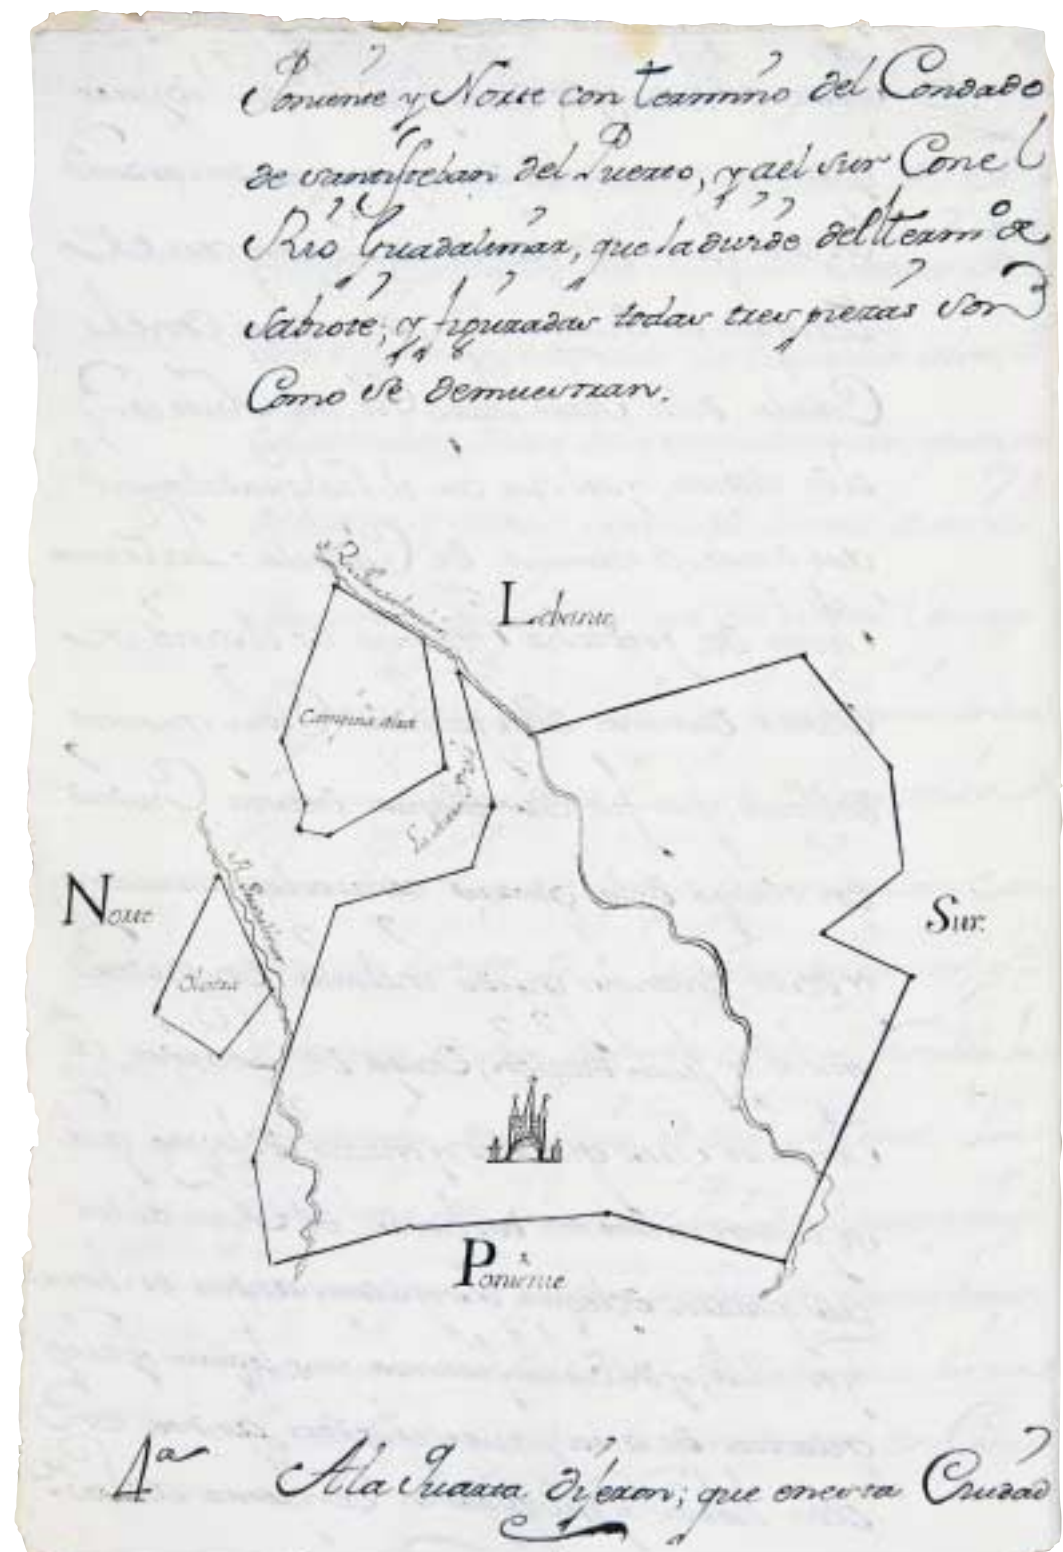 Poniente y Norte con termino del Condado
de santisteban del Puerto, y ael sur Con el
Rio Guadalimar, que la divide del term.º de
Sabiote; y figuradas todas tres piezas son
Como se demuestran.
Lebante
Campiña alta
Norte
Olvera
Sur.
Poniente
4ª A la Quarta dijeron; que en esta Ciudad